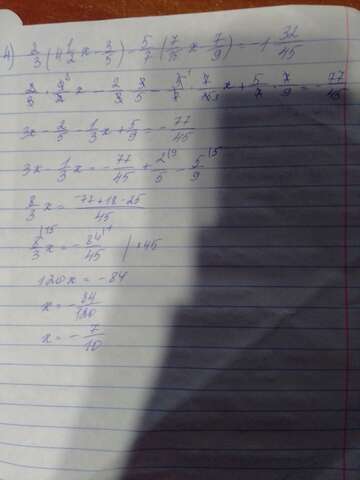 4) 2/3 (4 1/2 x - 3/5) - 5/7 (7/15 x - 7/9) = -1 32/45
2/3 · 9/2 x - 2/3 · 3/5 - 5/7 · 7/15 x + 5/7 · 7/9 = -77/45
3x - 2/5 - 1/3 x + 5/9 = -77/45
3x - 1/3 x = -77/45 + 2/5 - 5/9
8/3 x = (-77+18-25)/45
8/3 x = -84/45 | ·45
120x = -84
x = -84/120
x = -7/10